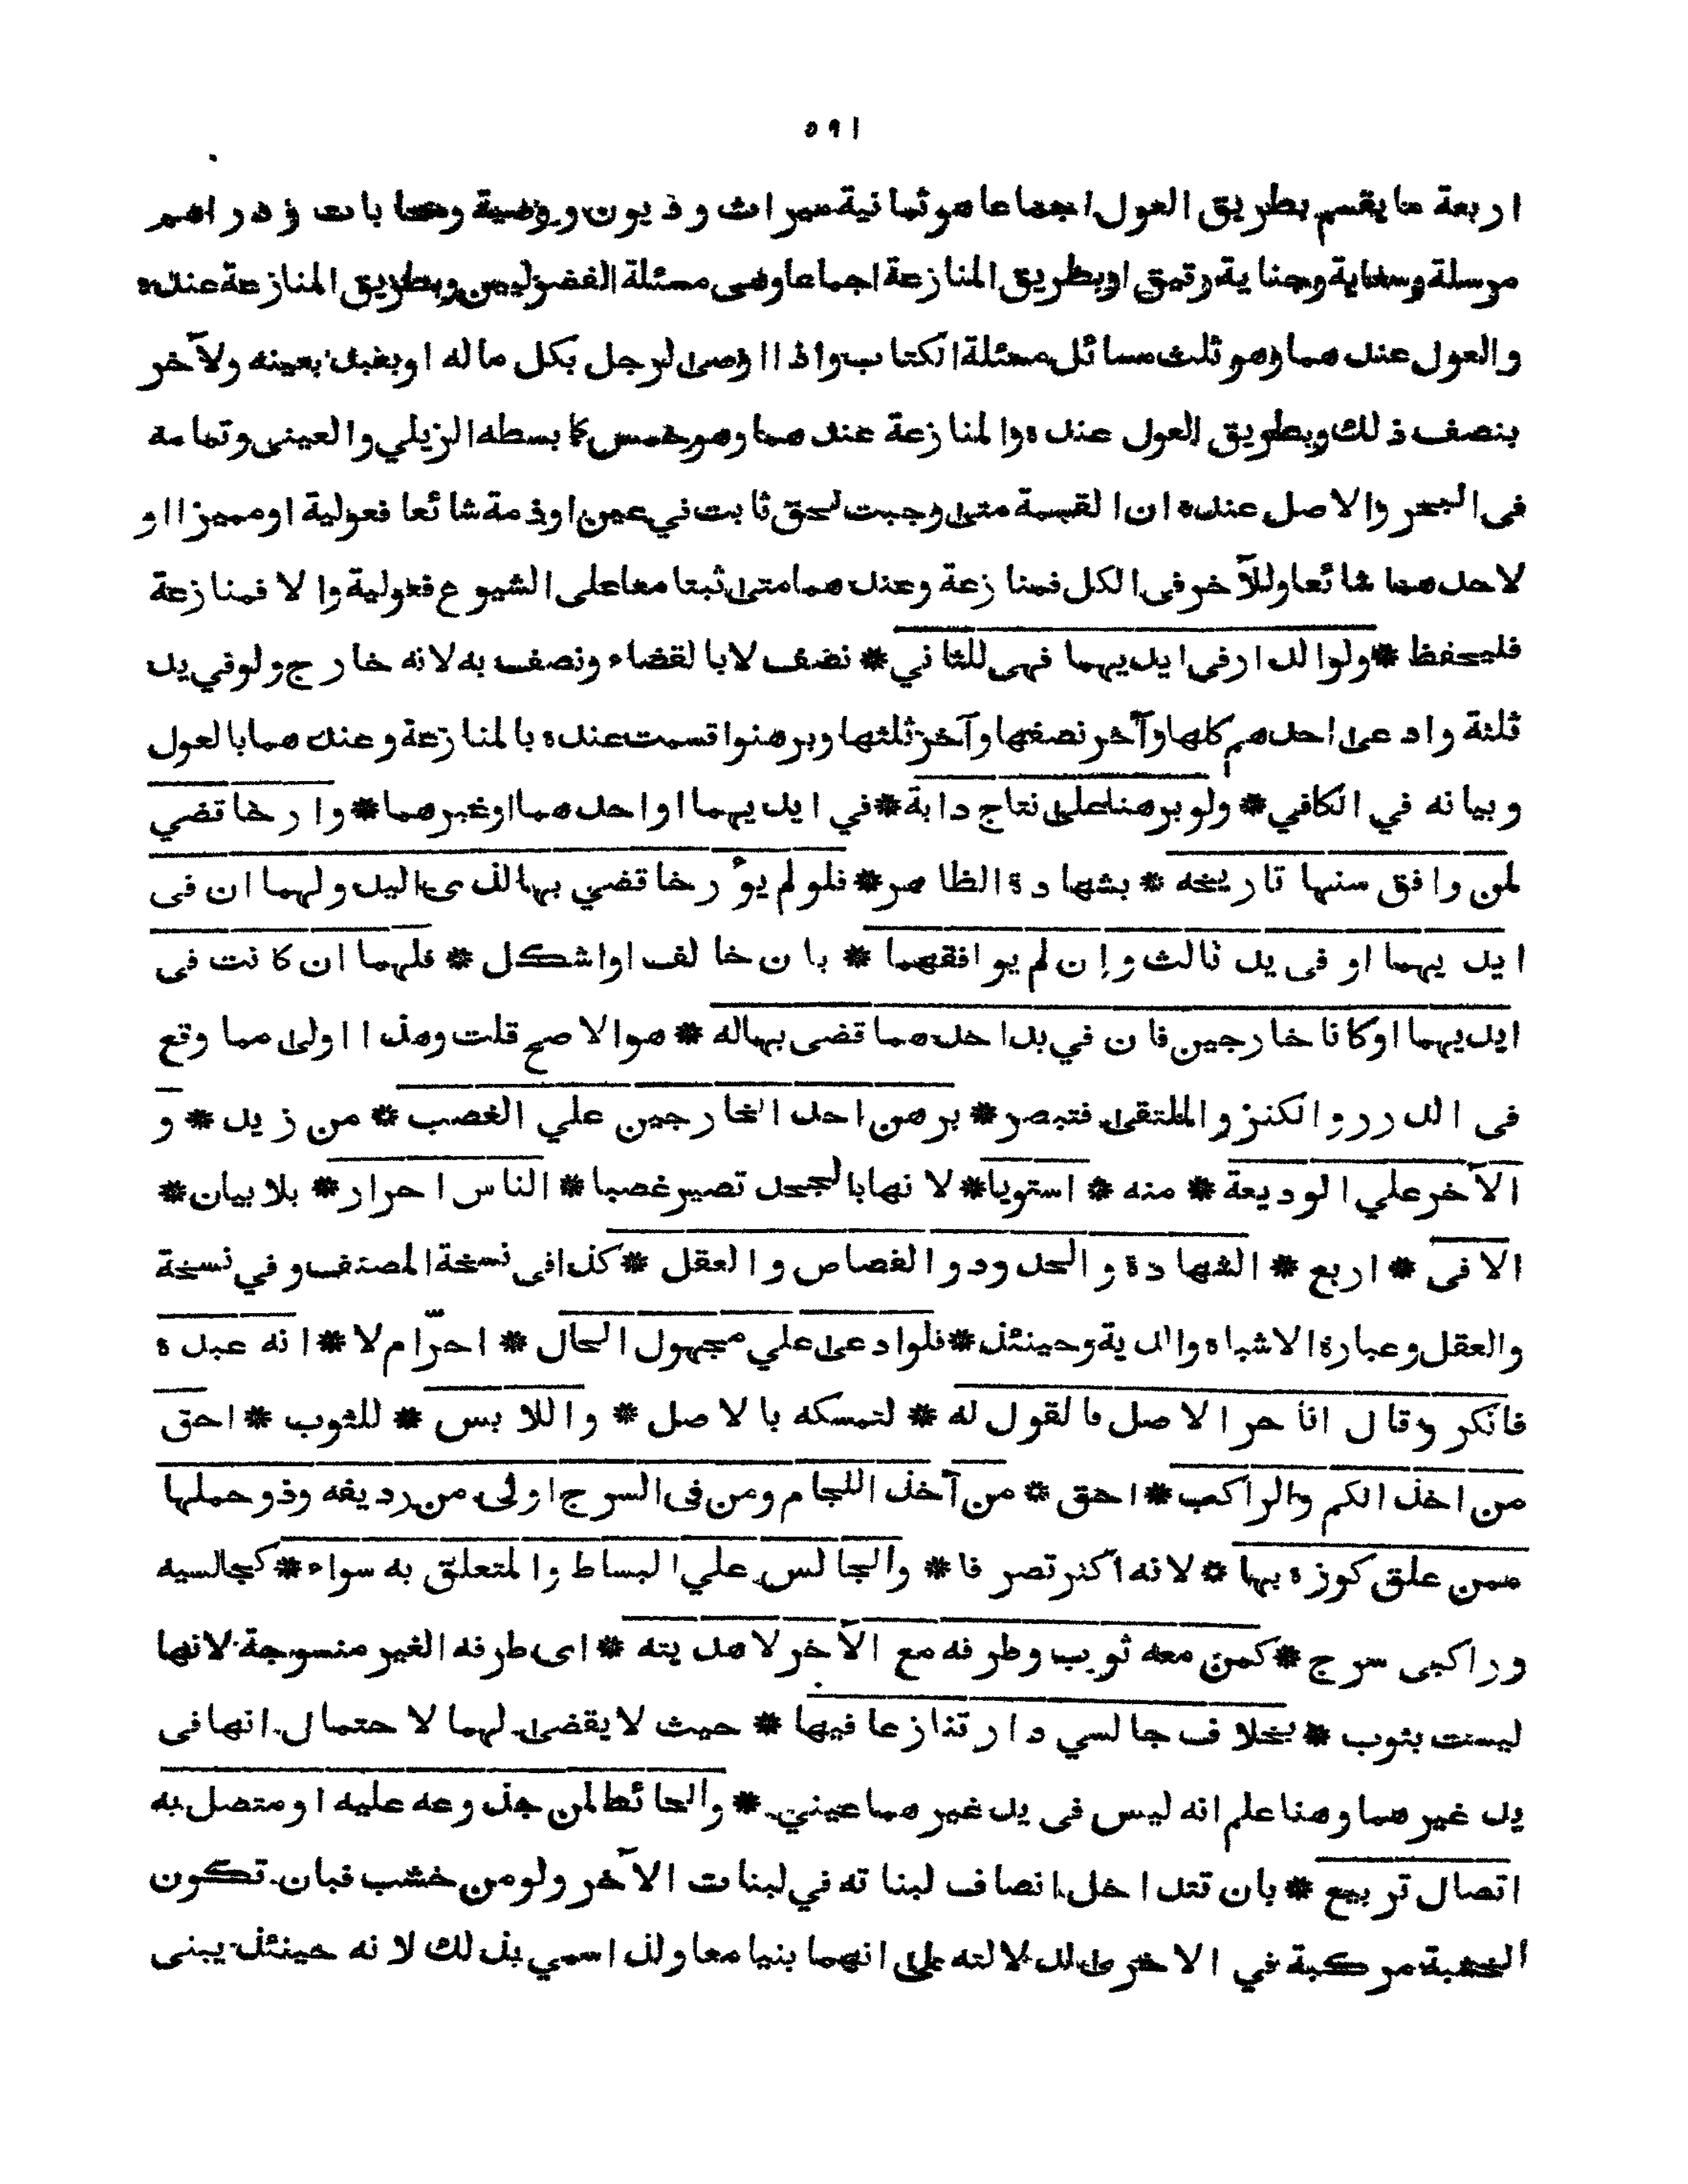 ٥٩١
اربعة ما يقسم بطريق العول اجماعا هو ثمانية ميراث وديون ووصية ومحابات ودراهم
مرسلة وسعاية وجناية رقيق او بطريق المنازعة اجماعا وهى مسئلة الفضوليين وبطريق المنازعة عنده
والعول عندهما وهو ثلث مسائل مسئلة الكتاب واذا اوصى لرجل بكل ماله او بعبد بعينه ولآخر
بنصف ذلك وبطريق العول عنده والمنازعة عندهما وهو خمس كما بسطه الزيلي والعينى وتمامه
فى البحر والاصل عنده ان القسمة متى وجبت لحق ثابت في عين او ذمة شائعا فعولية او مميزا او
لاحدهما شائعا وللآخر فى الكل فمنازعة وعندهما متى ثبتا معا على الشيوع فعولية والا فمنازعة
فليحفظ * ولو الدار فى ايديهما فهى للثاني * نصف لا بالقضاء ونصف به لانه خارج ولو في يد
ثلثة وادعى احدهم كلها وآخر نصفها وآخر ثلثها وبرهنوا قسمت عنده بالمنازعة وعندهما بالعول
وبيانه في الكافي * ولو برهنا على نتاج دابة * في ايديهما او احدهما او غيرهما * وارخا قضي
لمن وافق سنها تاريخه * بشهادة الظاهر * فلو لم يؤرخا قضي بها لذى اليد ولهما ان فى
ايديهما او فى يد ثالث وإن لم يوافقهما * بان خالف او اشكل * فلهما ان كانت فى
ايديهما او كانا خارجين فان في يد احدهما قضى بها له * هو الاصح قلت وهذا اولى مما وقع
فى الدرر والكنز والملتقى فتبصر * برهن احد الخارجين علي الغصب * من زيد * و
الآخر علي الوديعة * منه * استويا * لانها بالجحد تصير غصبا * الناس احرار * بلا بيان *
الا فى * اربع * الشهادة والحدود والقصاص والعقل * كذا فى نسخة المصنف وفي نسخة
والعقل وعبارة الاشباه والدية وحينئذ * فلو ادعى علي مجهول الحال * احرّ ام لا * انه عبده
فانكر وقال انا حر الاصل فالقول له * لتمسكه بالاصل * واللابس * للثوب * احق
من اخذ الكم والراكب * احق * من آخذ اللجام ومن فى السرج اولى من رديفه وذو حملها
ممن علق كوزه بها * لانه اكثر تصرفا * والجالس علي البساط والمتعلق به سواء * كجالسيه
وراكبى سرج * كمن معه ثوب وطرفه مع الآخر لا هديته * اى طرفه الغير منسوجة لانها
ليست بثوب * بخلاف جالسي دار تنازعا فيها * حيث لا يقضى لهما لاحتمال انها فى
يد غيرهما وهنا علم انه ليس فى يد غيرهما عيني * والحائط لمن جذوعه عليه او متصل به
اتصال تربيع * بان تتداخل انصاف لبناته في لبنات الآخر ولو من خشب فبان تكون
الخشبة مركبة في الاخرى لدلالته على انهما بنيا معا ولذا سمي بذلك لانه حينئذ يبنى